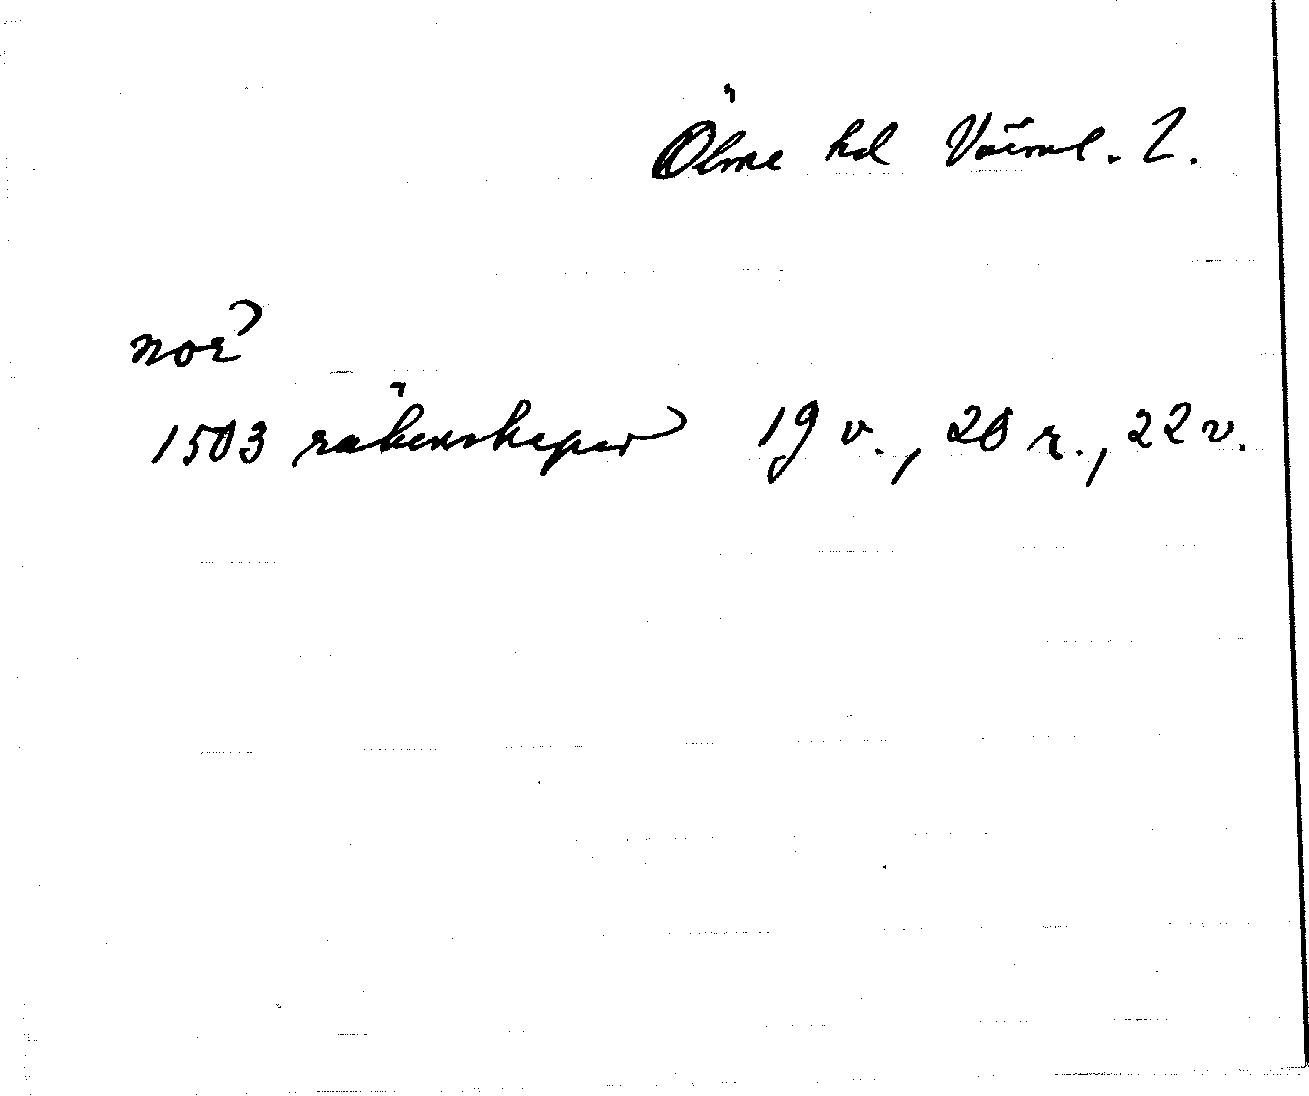 Ölme hd Värml. L.
nor
1503 räkenskaper 19 v., 20 r., 22 v.